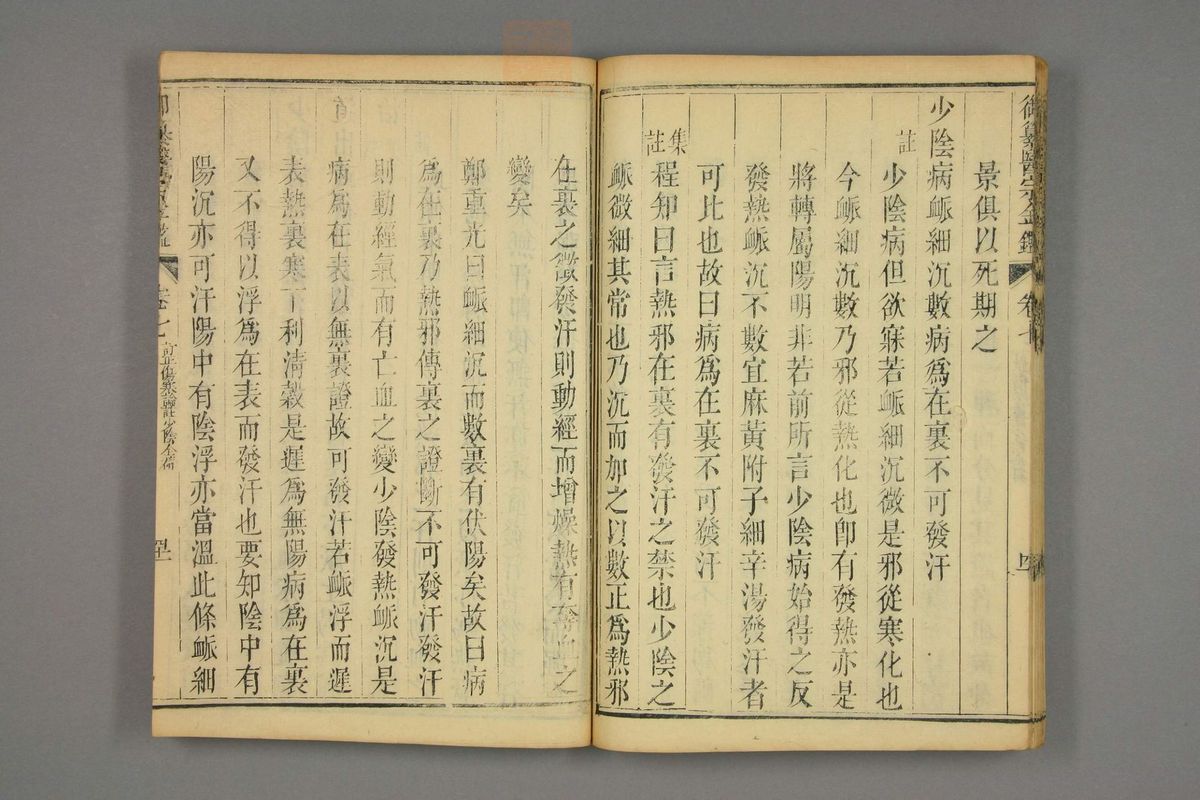 御纂醫宗金鑑 卷七
景俱以死期之
少陰病䘑細沉數病爲在裏不可發汗
註 少陰病但欲寐若䘑細沉微是邪從寒化也
今䘑細沉數乃邪從熱化也卽有發熱亦是
將轉屬陽明非若前所言少陰病始得之反
發熱䘑沉不數宜麻黃附子細辛湯發汗者
可比也故曰病爲在裏不可發汗
集註 程知曰言熱邪在裏有發汗之禁也少陰之
䘑微細其常也乃沉而加之以數正爲熱邪
在裏之徵發汗則動經而增燥熱有奪血之
變矣
鄭重光曰䘑細沉而數裏有伏陽矣故曰病
爲在裏乃熱邪傳裏之證斷不可發汗發汗
則動經氣而有亡血之變少陰發熱䘑沉是
病爲在表以無裏證故可發汗若䘑浮而遲
表熱裏寒下利淸穀是遲爲無陽病爲在裏
又不得以浮爲在表而發汗也要知陰中有
陽沉亦可汗陽中有陰浮亦當溫此條䘑細
卷七 訂正傷寒論註少陰全篇